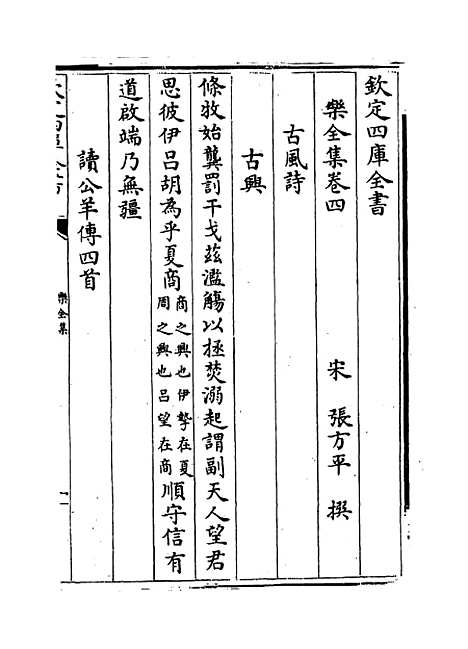 欽定四庫全書
樂全集卷四
宋 張方平 撰
古風詩
古興
條放始龔罰干戈茲濫觴以拯焚溺起謂副天人望君
思彼伊呂胡為乎夏商商之興也伊摯在夏周之興也呂望在商順守信有
道啟端乃無疆
讀公羊傳四首
樂全集